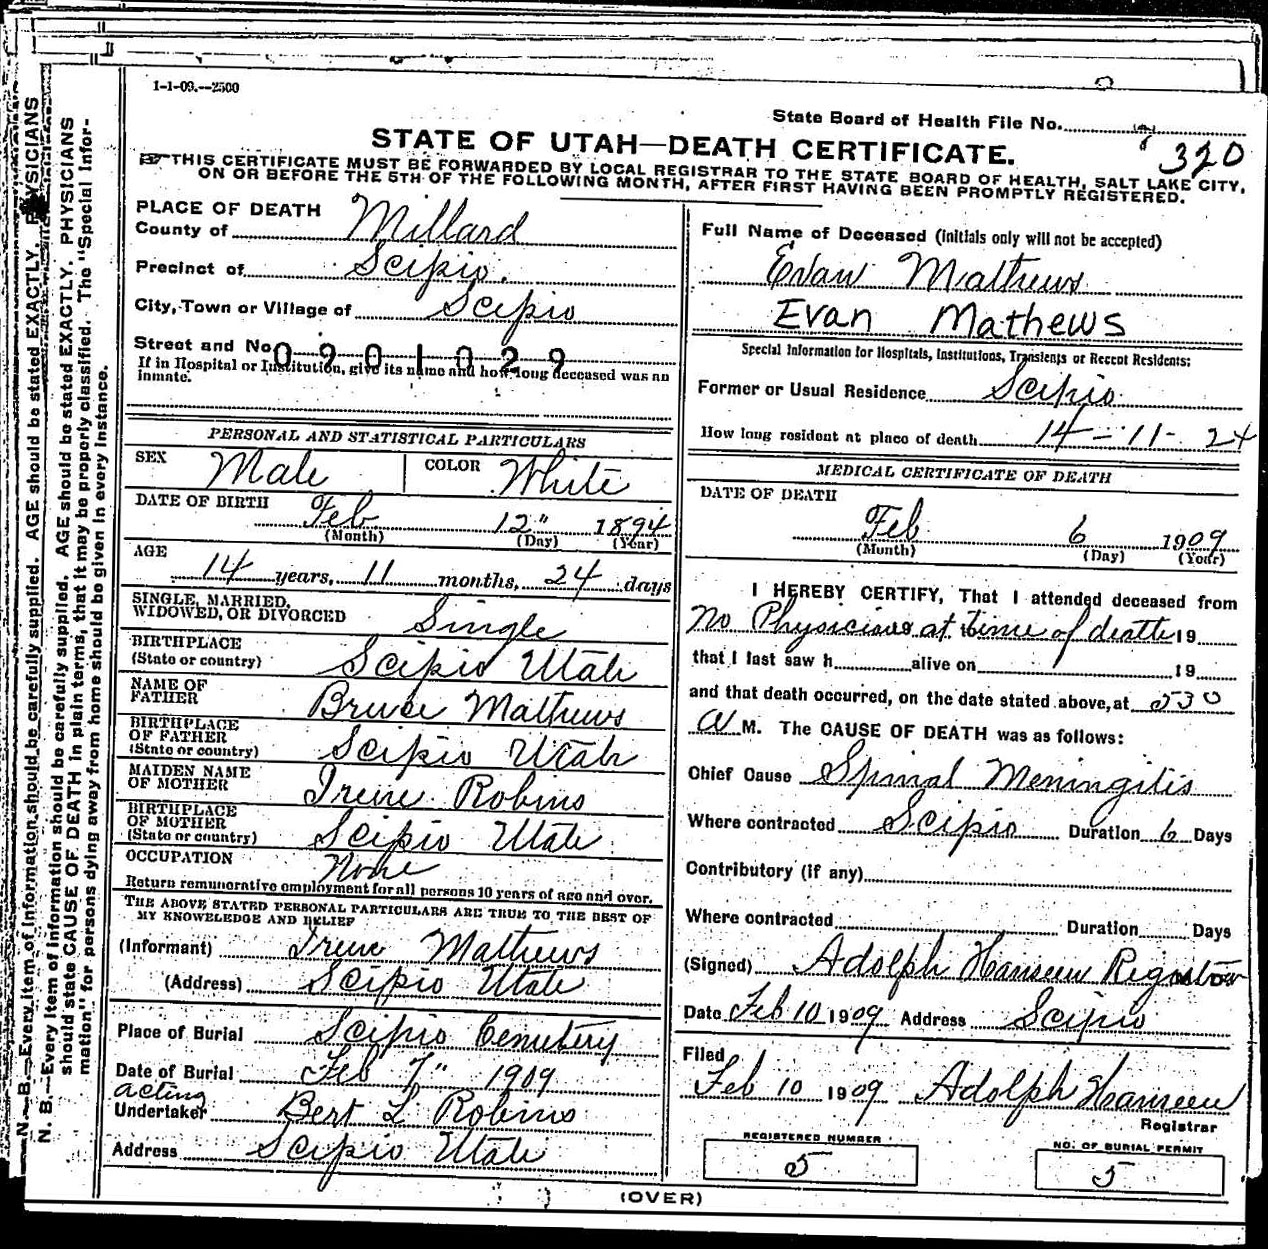 1-1-09.--2500
State Board of Health File No.
320
STATE OF UTAH—DEATH CERTIFICATE.
THIS CERTIFICATE MUST BE FORWARDED BY LOCAL REGISTRAR TO THE STATE BOARD OF HEALTH, SALT LAKE CITY,
ON OR BEFORE THE 5TH OF THE FOLLOWING MONTH, AFTER FIRST HAVING BEEN PROMPTLY REGISTERED.
PLACE OF DEATH
County of Millard
Precinct of Scipio.
City, Town or Village of Scipio
Street and No. 0901029
If in Hospital or Institution, give its name and how long deceased was an
inmate.
PERSONAL AND STATISTICAL PARTICULARS
SEX Male COLOR White
DATE OF BIRTH Feb 12" 1894
(Month) (Day) (Year)
AGE
14 years, 11 months, 24 days
SINGLE, MARRIED,
WIDOWED, OR DIVORCED Single
BIRTHPLACE
(State or country) Scipio Utah
NAME OF
FATHER Bruce Mathews
BIRTHPLACE
OF FATHER
(State or country) Scipio Utah
MAIDEN NAME
OF MOTHER Irene Robins
BIRTHPLACE
OF MOTHER
(State or country) Scipio Utah
OCCUPATION None
Return remunerative employment for all persons 10 years of age and over.
THE ABOVE STATED PERSONAL PARTICULARS ARE TRUE TO THE BEST OF
MY KNOWELEDGE AND BELIEF
(Informant) Irene Mathews
(Address) Scipio Utah
Place of Burial Scipio Cemetery
Date of Burial Feb 7" 1909
acting
Undertaker Bert L Robins
Address Scipio Utah
Full Name of Deceased (initials only will not be accepted)
Evan Mathews
Evan Mathews
Special Information for Hospitals, Institutions, Transients or Recent Residents:
Former or Usual Residence Scipio
How long resident at place of death 14-11-24
MEDICAL CERTIFICATE OF DEATH
DATE OF DEATH
Feb 6 1909
(Month) (Day) (Year)
I HEREBY CERTIFY, That I attended deceased from
No Physician at time of death 19
that I last saw h alive on 19
and that death occurred, on the date stated above, at 530
A M. The CAUSE OF DEATH was as follows:
Chief Cause Spinal Meningitis
Where contracted Scipio Duration 6 Days
Contributory (if any)
Where contracted Duration Days
(Signed) Adolph Hanseen Registrar
Date Feb 10 1909 Address Scipio
Filed
Feb 10 1909 Adolph Hanseen
Registrar
REGISTERED NUMBER
5
NO. OF BURIAL PERMIT
5
(OVER)
N. B.—Every item of information should be carefully supplied. AGE should be stated EXACTLY. PHYSICIANS
N. B.—Every item of information should be carefully supplied. AGE should be stated EXACTLY. PHYSICIANS
should state CAUSE OF DEATH in plain terms, that it may be properly classified. The "Special Infor-
mation" for persons dying away from home should be given in every instance.